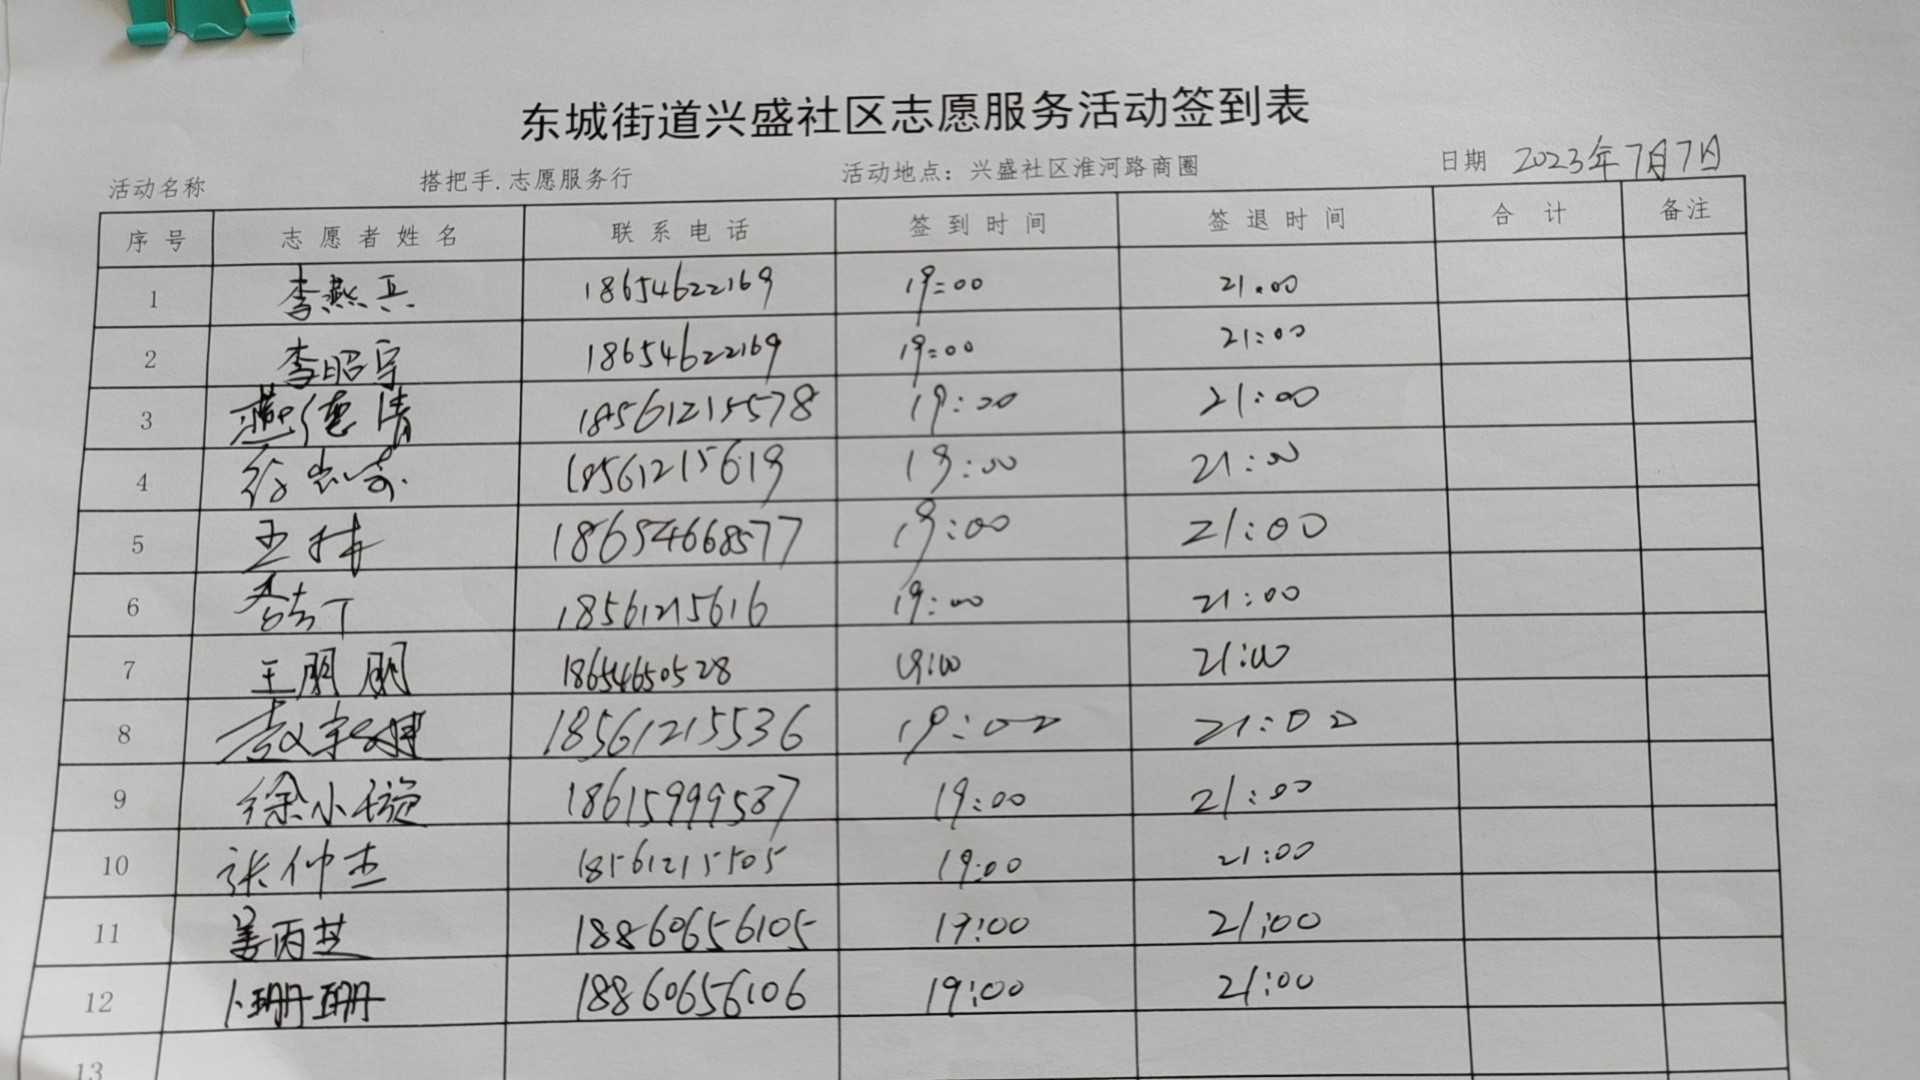 东城街道兴盛社区志愿服务活动签到表
活动名称 搭把手.志愿服务行 活动地点：兴盛社区淮河路商圈 日期 2023年7月7日
序号 志愿者姓名 联系电话 签到时间 签退时间 合计 备注
1 李燕兵 18654622169 19:00 21.00
2 李昭宇 18654622169 19:00 21:00
3 燕德清 18561215578 19:00 21:00
4 18561215619 19:00 21:00
5 王伟 18654668577 19:00 21:00
6 18561215616 19:00 21:00
7 王朋朋 18654650528 19:00 21:00
8 18561215536 19:00 21:00
9 徐小璇 18615999537 19:00 21:00
10 张仲杰 18561215505 19:00 21:00
11 姜丙芝 18860656105 19:00 21:00
12 卜珊珊 18860656106 19:00 21:00
13